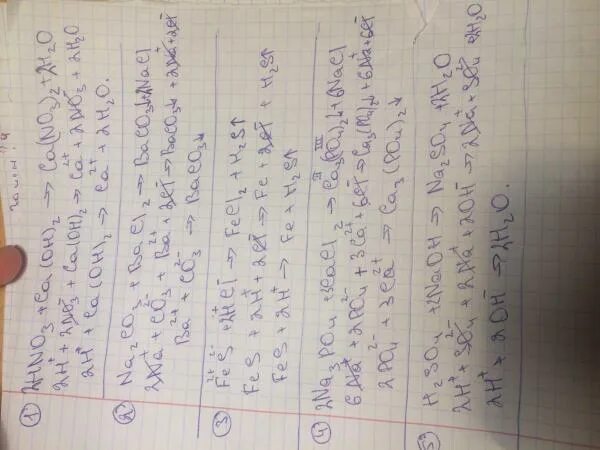 ① 2HNO₃ + Ca(OH)₂ → Ca(NO₃)₂ + 2H₂O
2H⁺ + 2NO₃⁻ + Ca(OH)₂ → Ca²⁺ + 2NO₃⁻ + 2H₂O
2H⁺ + Ca(OH)₂ → Ca²⁺ + 2H₂O.
② Na₂CO₃ + BaCl₂ → BaCO₃↓ + 2NaCl
2Na⁺ + CO₃²⁻ + Ba²⁺ + 2Cl⁻ → BaCO₃↓ + 2Na⁺ + 2Cl⁻
Ba²⁺ + CO₃²⁻ → BaCO₃↓
③ Fe²⁺S²⁻ + 2H⁺Cl⁻ → FeCl₂ + H₂S↑
FeS + 2H⁺ + 2Cl⁻ → Fe + 2Cl⁻ + H₂S↑
FeS + 2H⁺ → Fe + H₂S↑
④ 2Na₃PO₄ + 3CaCl₂ → Ca₃(PO₄)₂↓ + 6NaCl
6Na⁺ + 2PO₄²⁻ + 3Ca²⁺ + 6Cl⁻ → Ca₃(PO₄)₂↓ + 6Na⁺ + 6Cl⁻
2PO₄²⁻ + 3Ca²⁺ → Ca₃(PO₄)₂↓
⑤ H₂SO₄ + 2NaOH → Na₂SO₄ + 2H₂O
2H⁺ + SO₄²⁻ + 2Na⁺ + 2OH⁻ → 2Na⁺ + SO₄²⁻ + 2H₂O
2H⁺ + 2OH⁻ → 2H₂O.